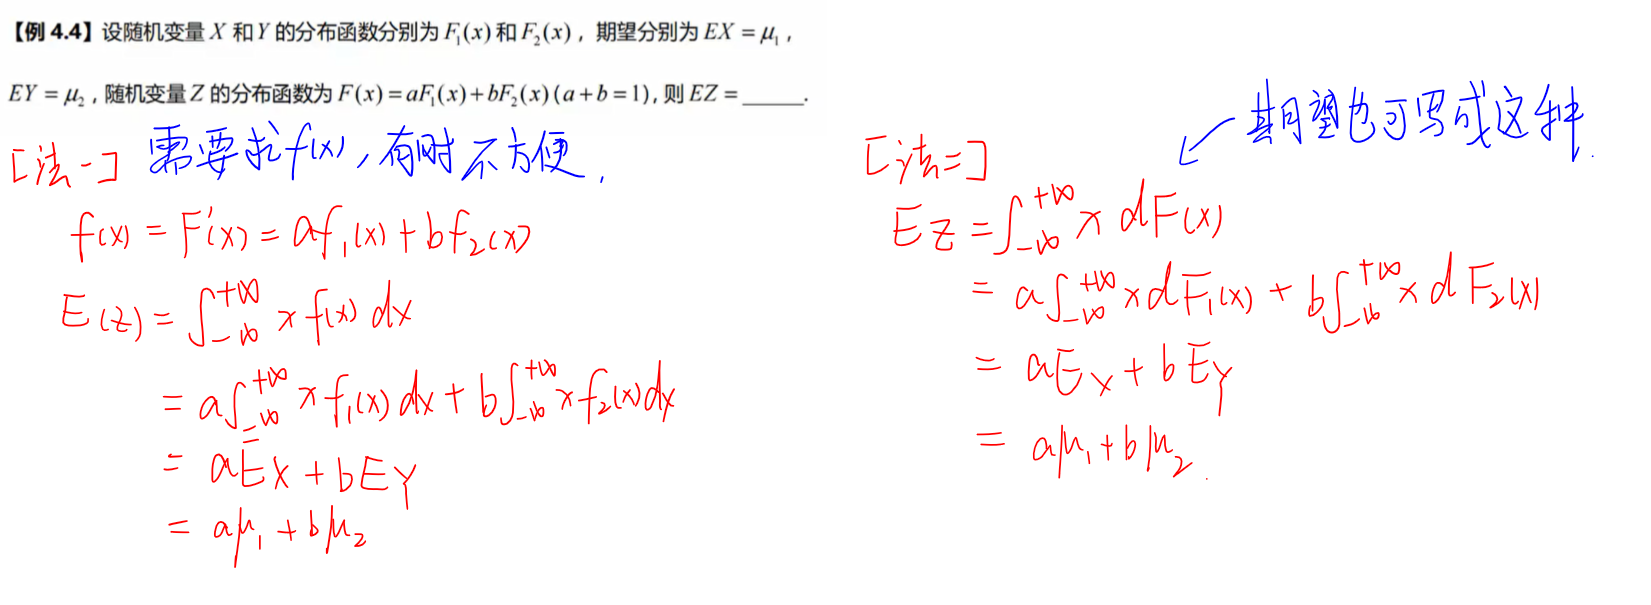 【例 4.4】设随机变量 X 和 Y 的分布函数分别为 F₁(x) 和 F₂(x)，期望分别为 EX = μ₁，
EY = μ₂，随机变量 Z 的分布函数为 F(x) = aF₁(x) + bF₂(x) (a + b = 1)，则 EZ = _____.
[法一] 需要求f(x)，有时不方便.
f(x) = F'(x) = af₁(x) + bf₂(x)
E(Z) = ∫₋∞^+∞ x f(x) dx
= a∫₋∞^+∞ x f₁(x) dx + b∫₋∞^+∞ x f₂(x) dx
= aEX + bEY
= aμ₁ + bμ₂
[法二] ← 期望也可写成这种.
EZ = ∫₋∞^+∞ x dF(x)
= a∫₋∞^+∞ x dF₁(x) + b∫₋∞^+∞ x dF₂(x)
= aEX + bEY
= aμ₁ + bμ₂.